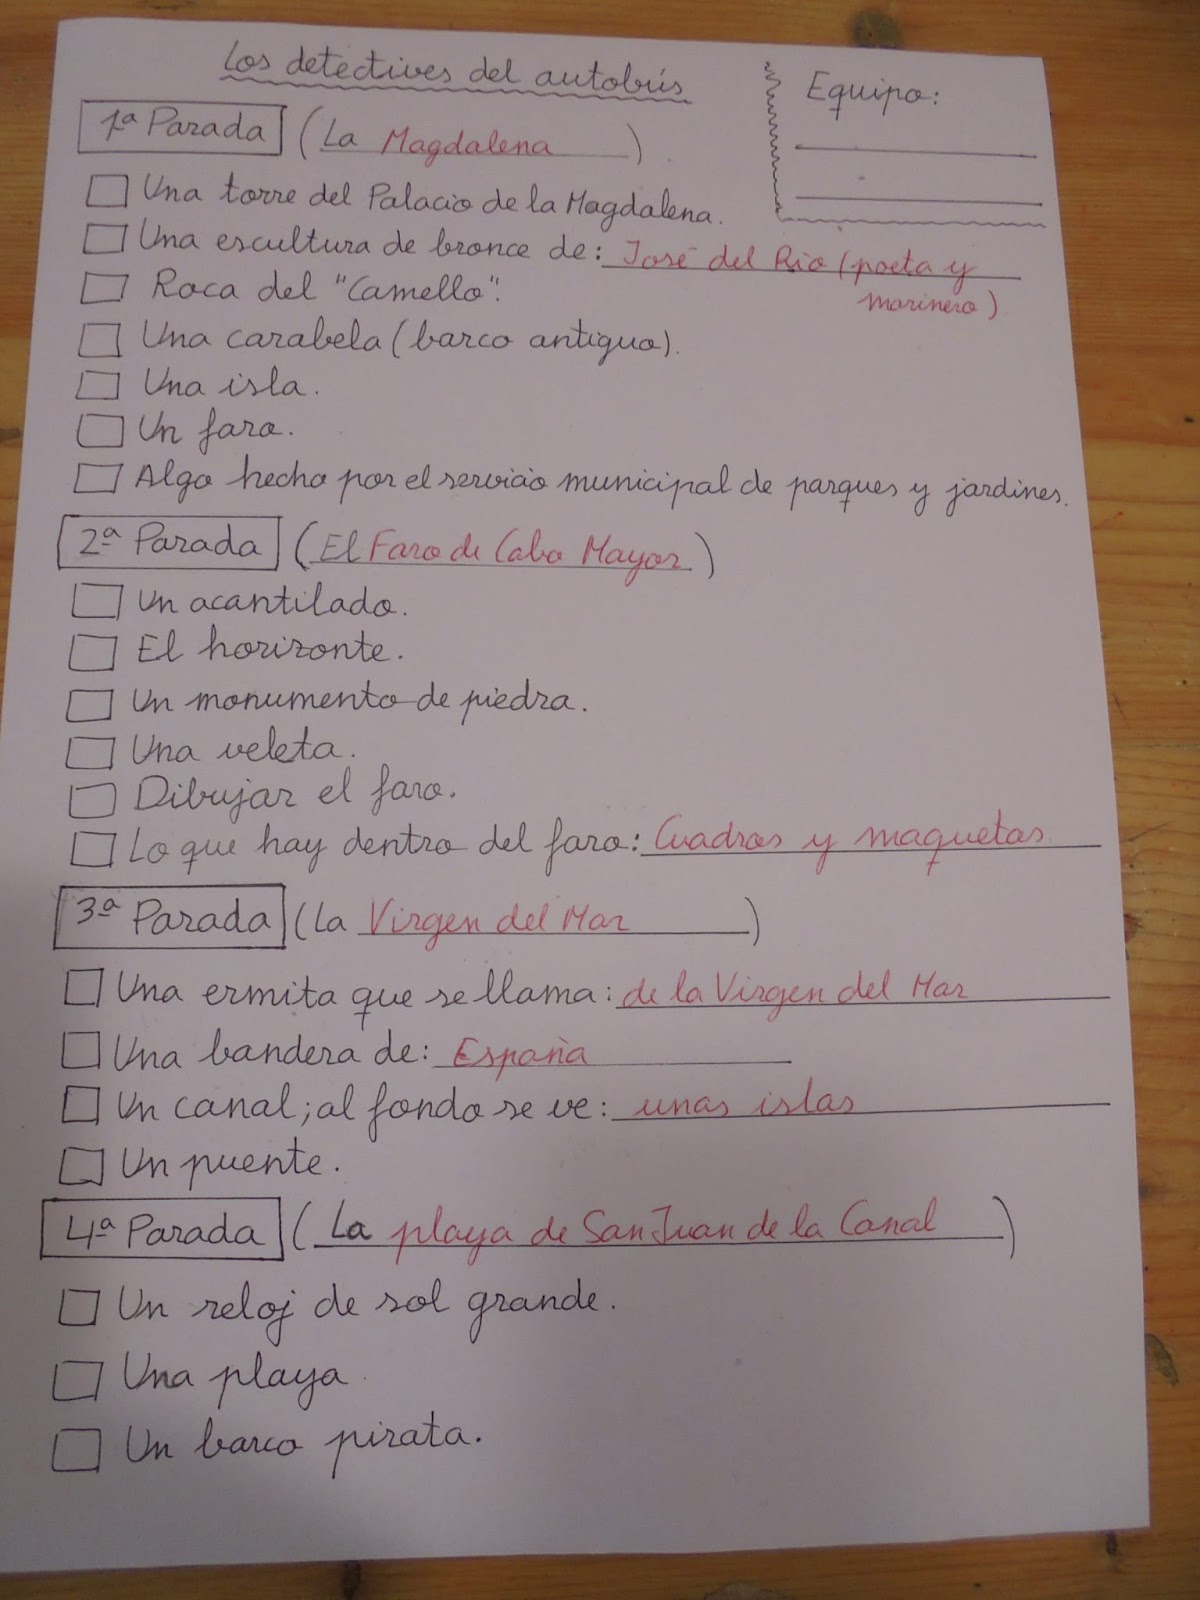 Los detectives del autobús
Equipo:
1ª Parada (La Magdalena)
Una torre del Palacio de la Magdalena.
Una escultura de bronce de: José del Río (poeta y
marinero)
Roca del "Camello".
Una carabela (barco antiguo).
Una isla.
Un faro.
Algo hecho por el servicio municipal de parques y jardines.
2ª Parada (El Faro de Cabo Mayor)
Un acantilado.
El horizonte.
Un monumento de piedra.
Una veleta.
Dibujar el faro.
Lo que hay dentro del faro: Cuadros y maquetas.
3ª Parada (La Virgen del Mar)
Una ermita que se llama: de la Virgen del Mar
Una bandera de: España
Un canal; al fondo se ve: unas islas
Un puente.
4ª Parada (La playa de San Juan de la Canal)
Un reloj de sol grande.
Una playa.
Un barco pirata.